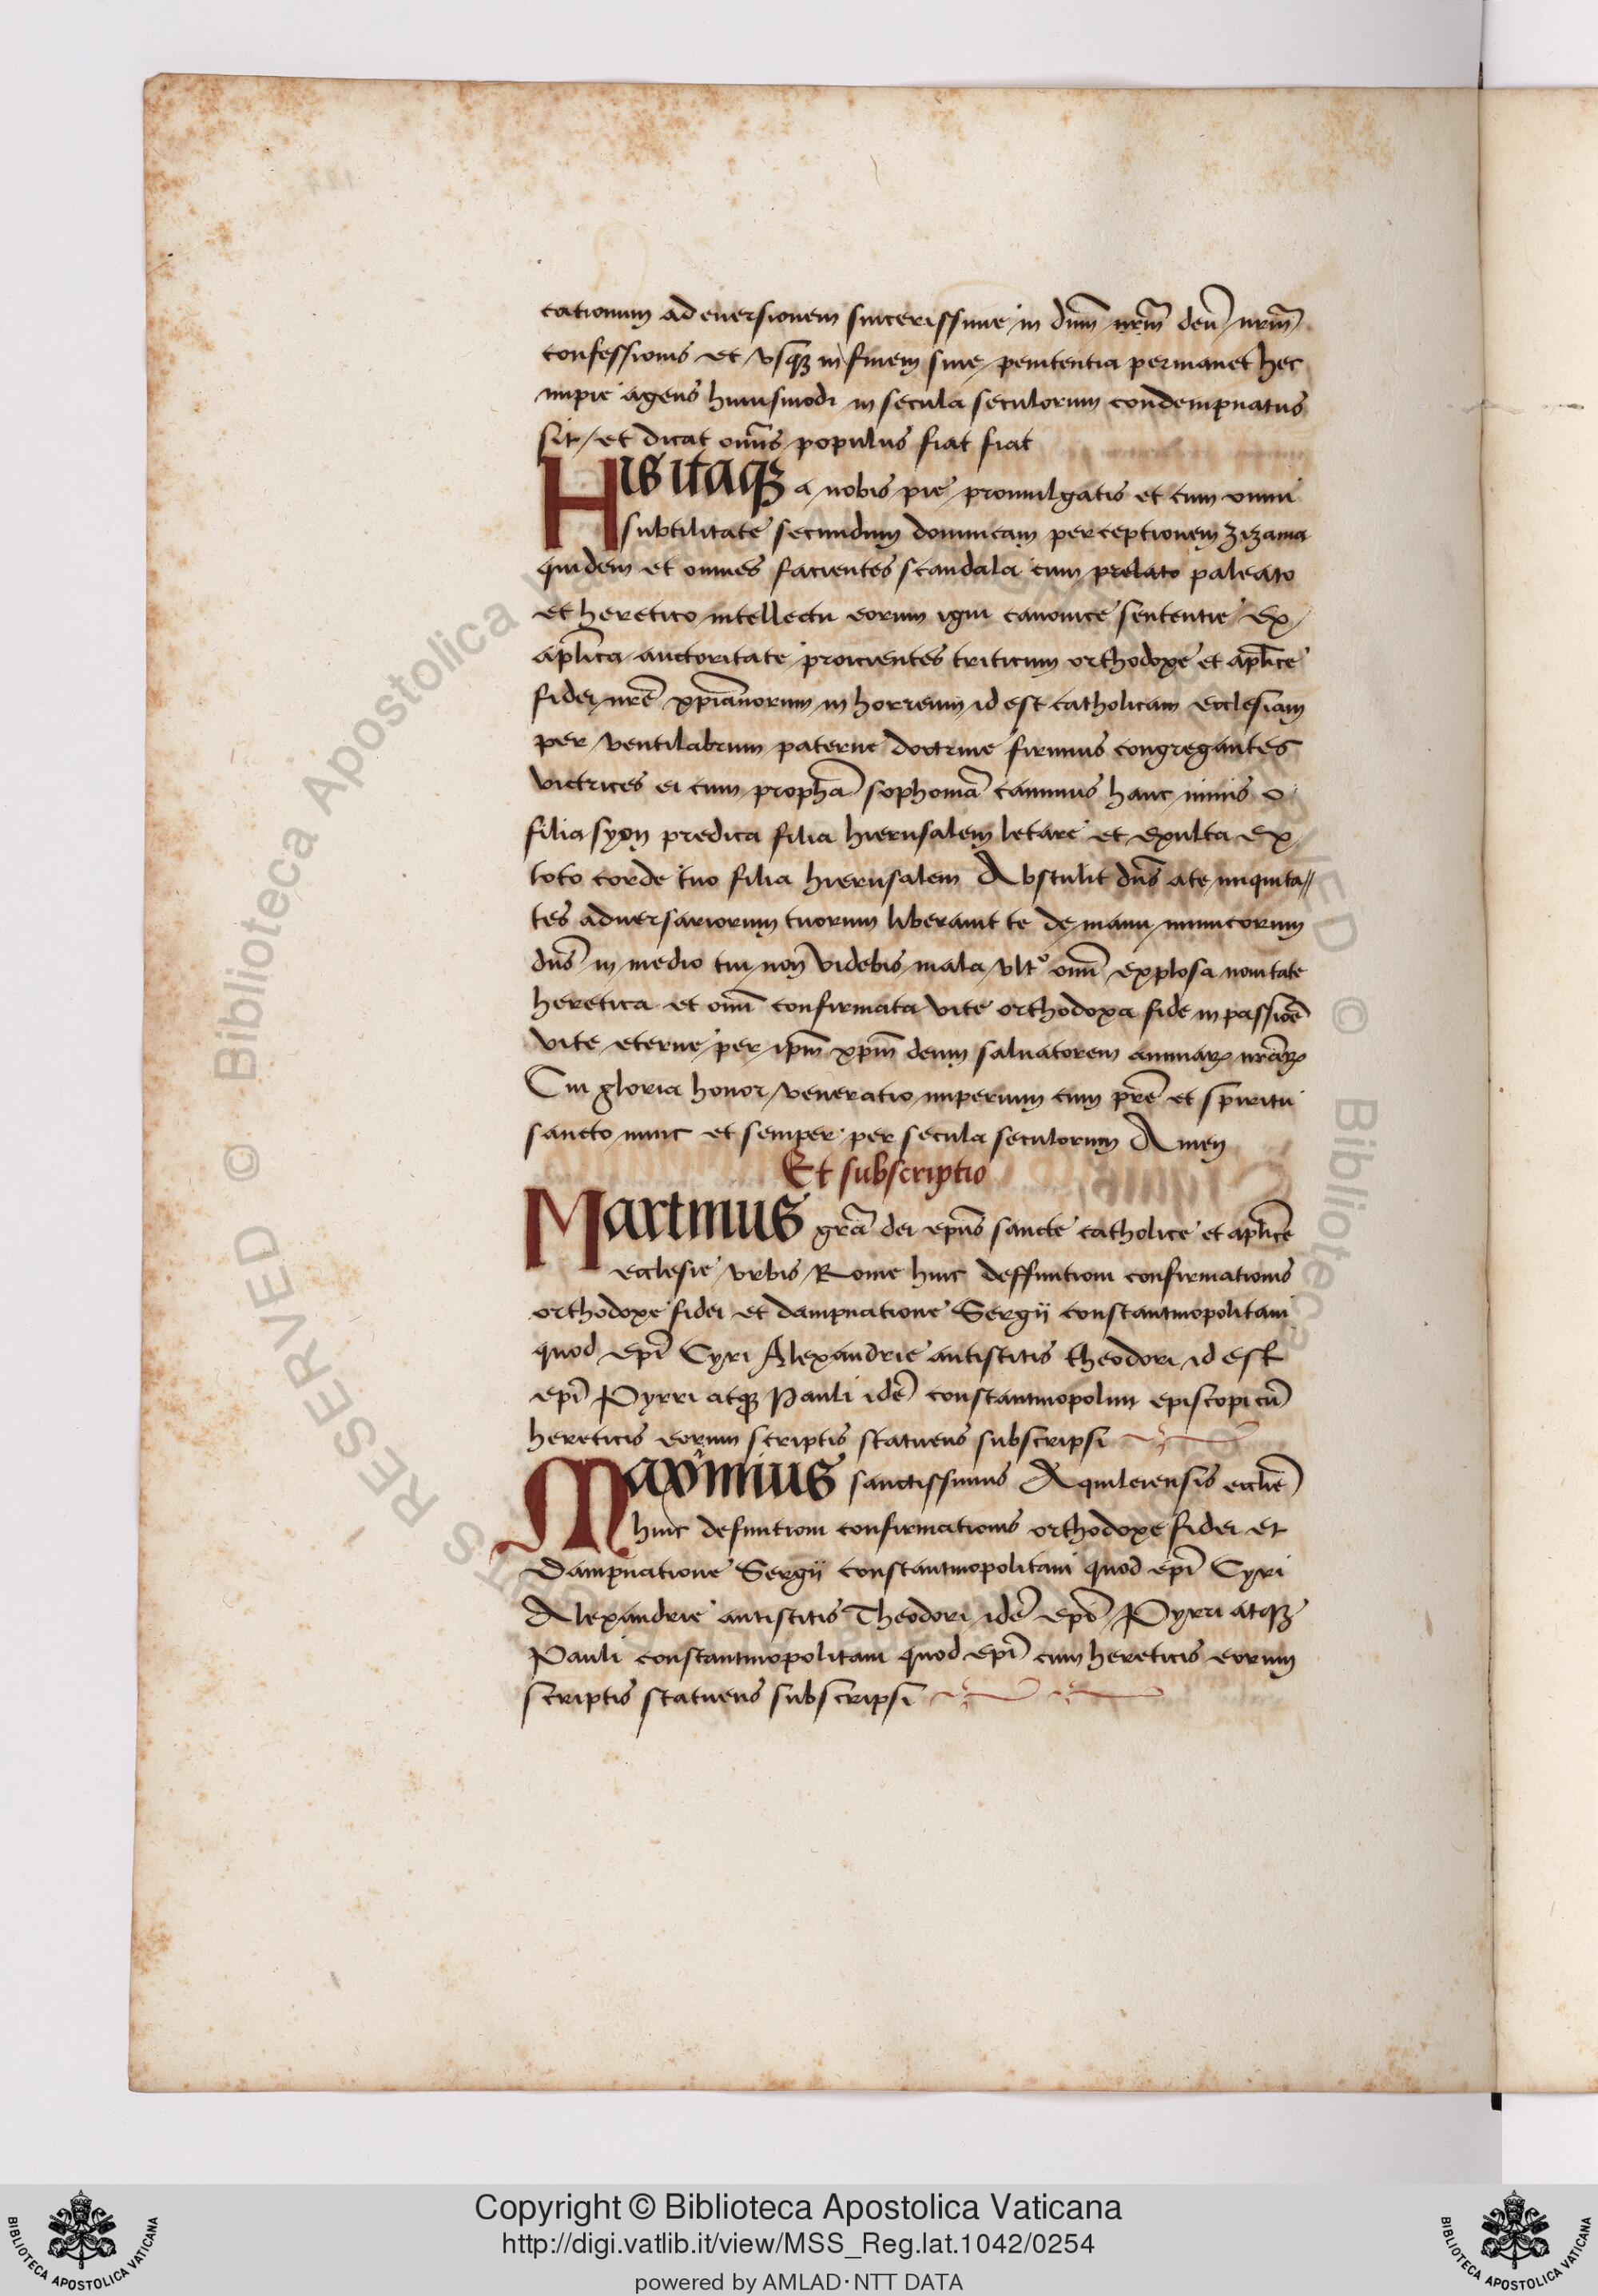 cationum ad euersionem sincerissime in dnm̄ nrm̄ deū nrm̄
confessionis et vsq; in finem sine penitentia permanet hec
impie agens huiusmodi in secula seculorum condempnatus
sit / et dicat omīs populus fiat fiat
His itaq; a nobis pie promulgatis et cum omni
subtilitate secundum dominicam perceptionem zizania
quidem et omnes facientes scandala cum prelato paleato
et heretico intellectu eorum igni canonice sententie ex
aplīca auctoritate proicientes triticum orthodoxe et aplīce
fidei nrē xpīanorum in horreum id est catholicam ecclesiam
per ventilabrum paterne doctrine firmius congregantes
victrices ei cum prophā sophoniā canimus hanc nimis o
filia syon predica filia hierusalem letare et exulta ex
toto corde tuo filia hierusalem Abstulit dn̄s a te iniquita//
tes aduersariorum tuorum liberauit te de manu inimicorum
dn̄s in medio tui non videbis mala vltͦ omī explosa nouitate
heretica et omī confirmata vite orthodoxa fide in passioē
vite eterne per ipm̄ xpm̄ deum saluatorem animaꝝ nrāꝝ
Cui gloria honor / veneratio imperium cum prē et spiritu
sancto nunc et semper per secula seculorum Amen
Et subscriptio
Martinus grā dei epūs sancte catholice et aplīce
ecclesie vrbis Rome huic deffinitioni confirmationis
orthodoxe fidei et dampnatione Sergij constantinopolitani
quod epī Cyri Alexandrie antistitis theodori id est
epī Pyrri atq; Pauli idē constantinopolim episcopi cū
hereticis eorum scriptis statuens subscripsi
Maximius sanctissimus Aquileiensis eccliē
huic definitioni confirmationis orthodoxe fidei et
Dampnatione Sergij constantinopolitani quod epī Cyri
Alexandrie antistitis Theodori idē epō Pyrri atq;
Pauli constantinopolitani quod epī cum hereticis eorum
scriptis statuens subscripsi
Copyright © Biblioteca Apostolica Vaticana
http://digi.vatlib.it/view/MSS_Reg.lat.1042/0254
powered by AMLAD·NTT DATA
BIBLIOTECA APOSTOLICA VATICANA
BIBLIOTECA APOSTOLICA VATICANA